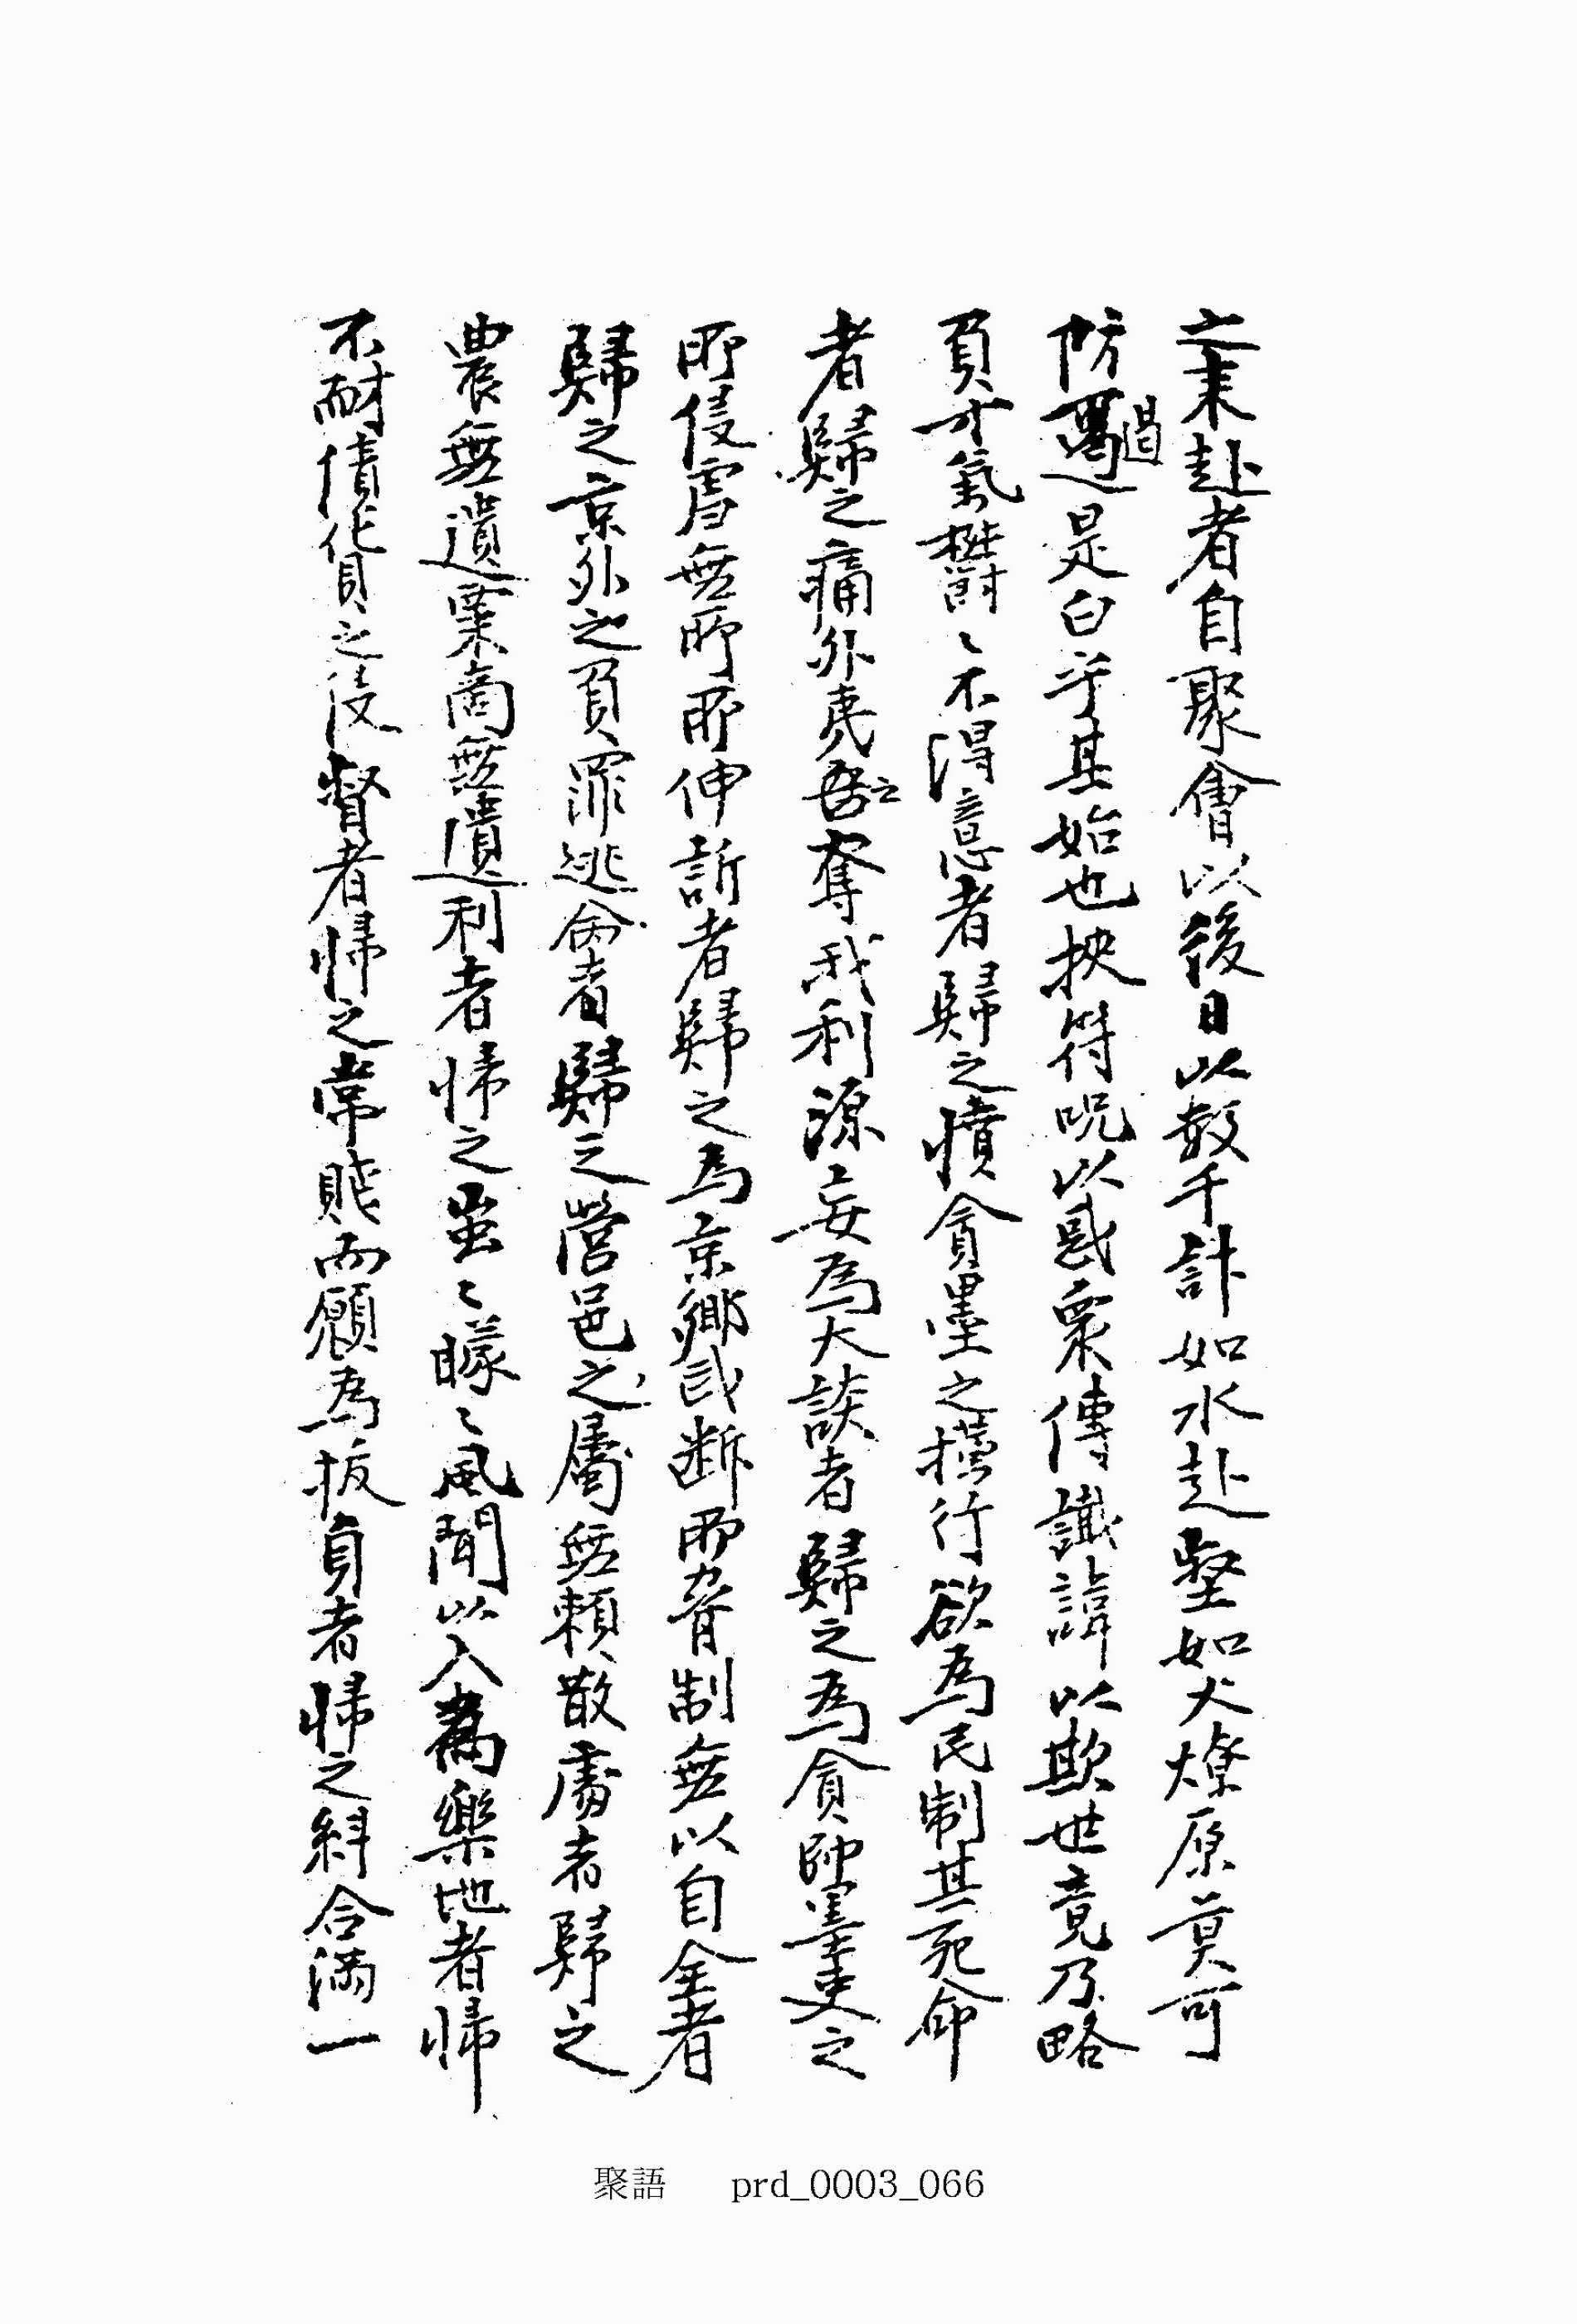 之来赴者自聚會以後日以數千計如水赴壑如火燎原莫可
防遏遏是白乎其始也挾符呪以惑衆傳讖諱以欺世竟乃略
負才氣欝〻不得意者歸之憤貪墨之橫行欲爲民制其死命
者歸之痛外夷之奪我利源妄爲大談者歸之爲貪帥墨吏之
所侵虐無所所伸訴者歸之爲京鄕武断而脅制無以自全者
歸之京外之負罪逃命者歸之營邑之屬無賴散處者歸之
農無遺粟商無遺利者帰之蚩〻矇〻風聞以入爲樂地者帰
不耐債貨之侵督者帰之常賤而願爲拔身者帰之糾合滿一
聚語 prd_0003_066